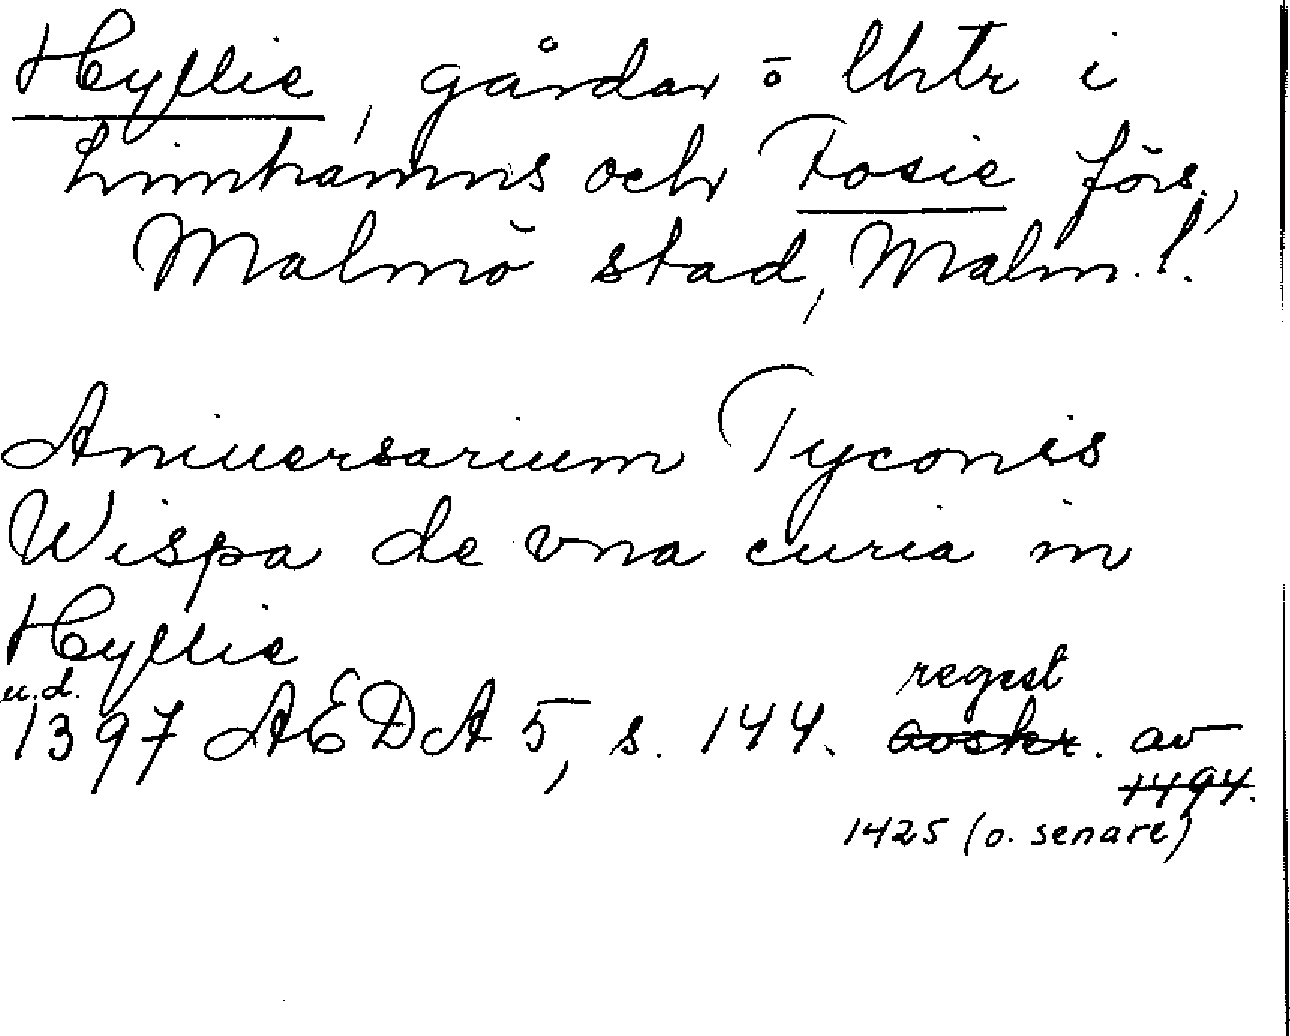 Hyllie, gårdar o lhtr i
Limhamns och Fosie förs.,
Malmö stad, Malm. l.
Aniuersarium Tyconis
Wispa de vna curia in
Hyllie
u.d.
1397 ÆDA 5, s. 144. regest avskr. av
1494.
1425 (o. senare)